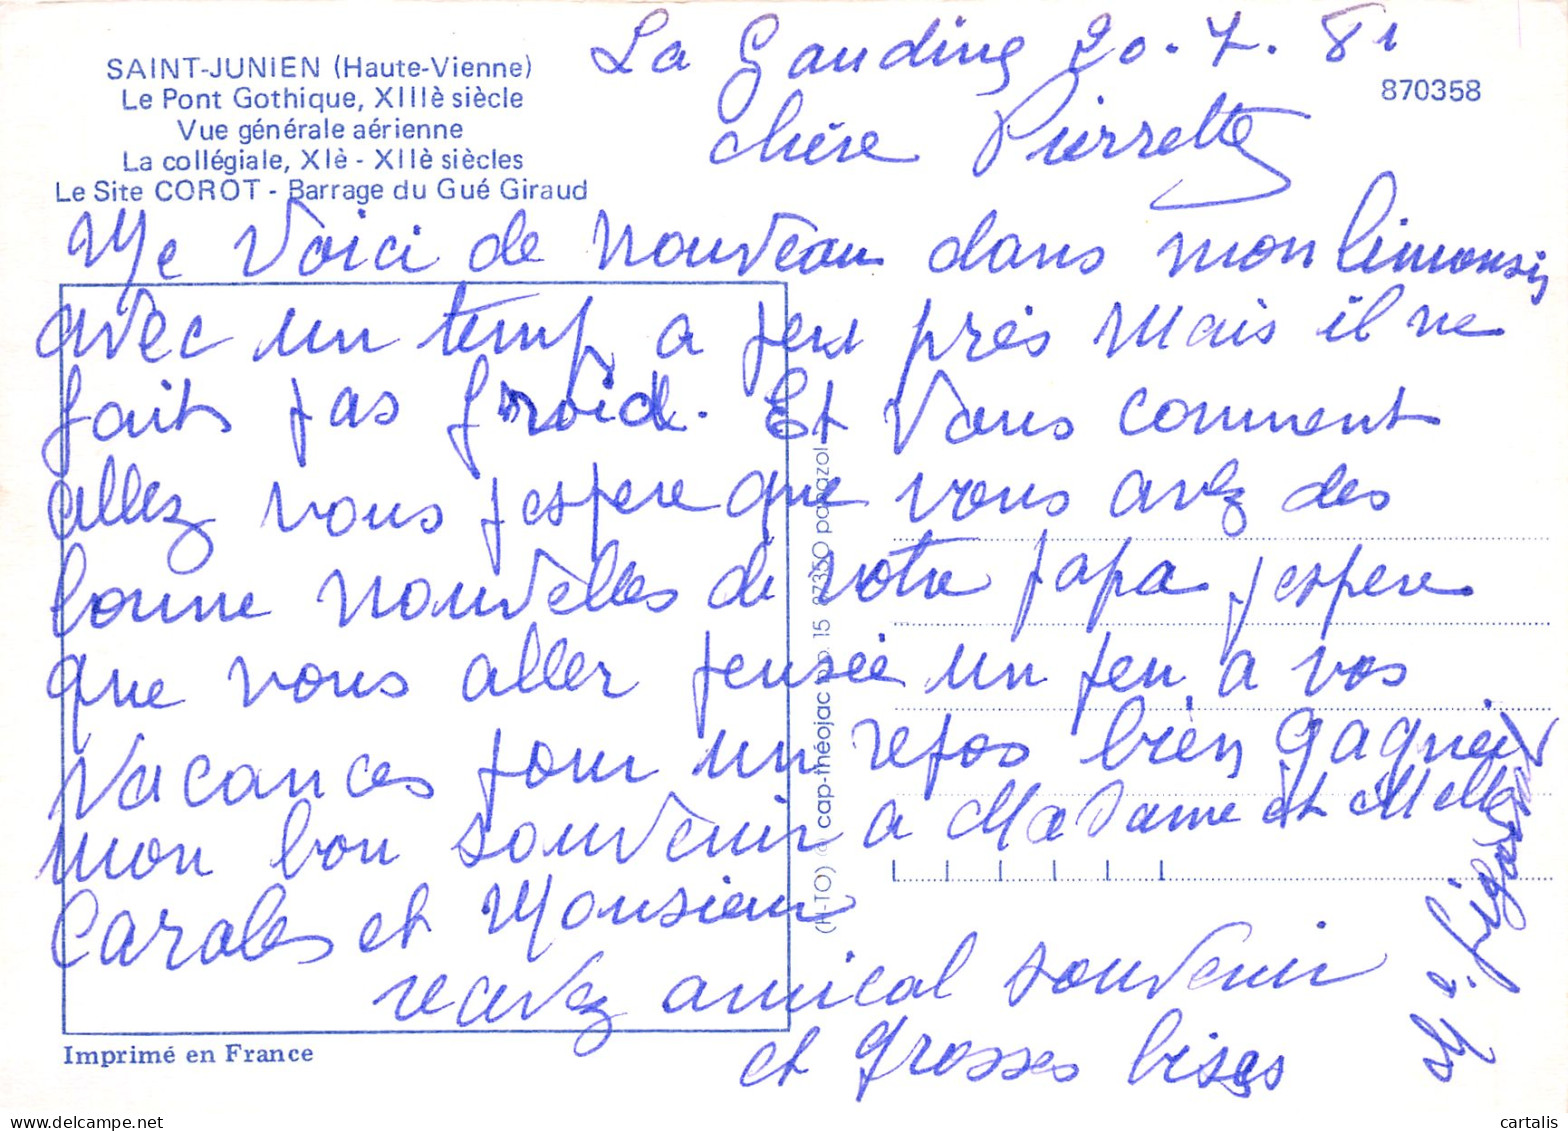 SAINT-JUNIEN (Haute-Vienne)
Le Pont Gothique, XIIIè siècle
Vue générale aérienne
La collégiale, XIè - XIIè siècles
Le Site COROT - Barrage du Gué Giraud
870358
La 20.7.81
chère Pierrette
Me Voici de nouveau dans mon limousin
avec un temp a peu près Mais il ne
fait pas froid. Et Vous comment
allez vous j'espere que vous avez des
bonne nouvelles de votre papa j'espere
que vous aller pensée un peu a vos
Vacances pour un repos bien gagnée
mon bon souvenir a Madame et Melle
Carales et Monsieur
recevez amical souvenir
et grosses bises
cap-théojac b.p. 15 87350 panazol
Imprimé en France
cartalis